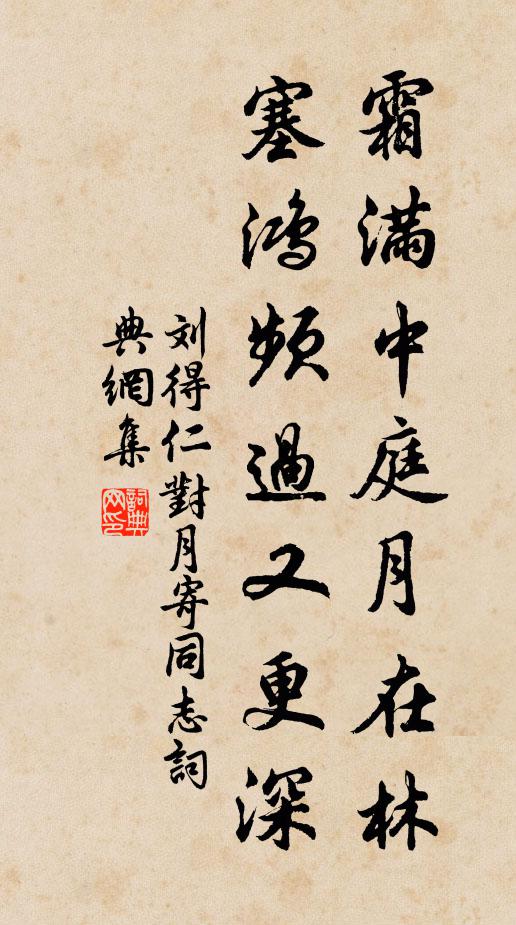 霜满中庭月在林
塞鸿频過又更深
刘得仁對月寄同志詞
典網集
詞典网印